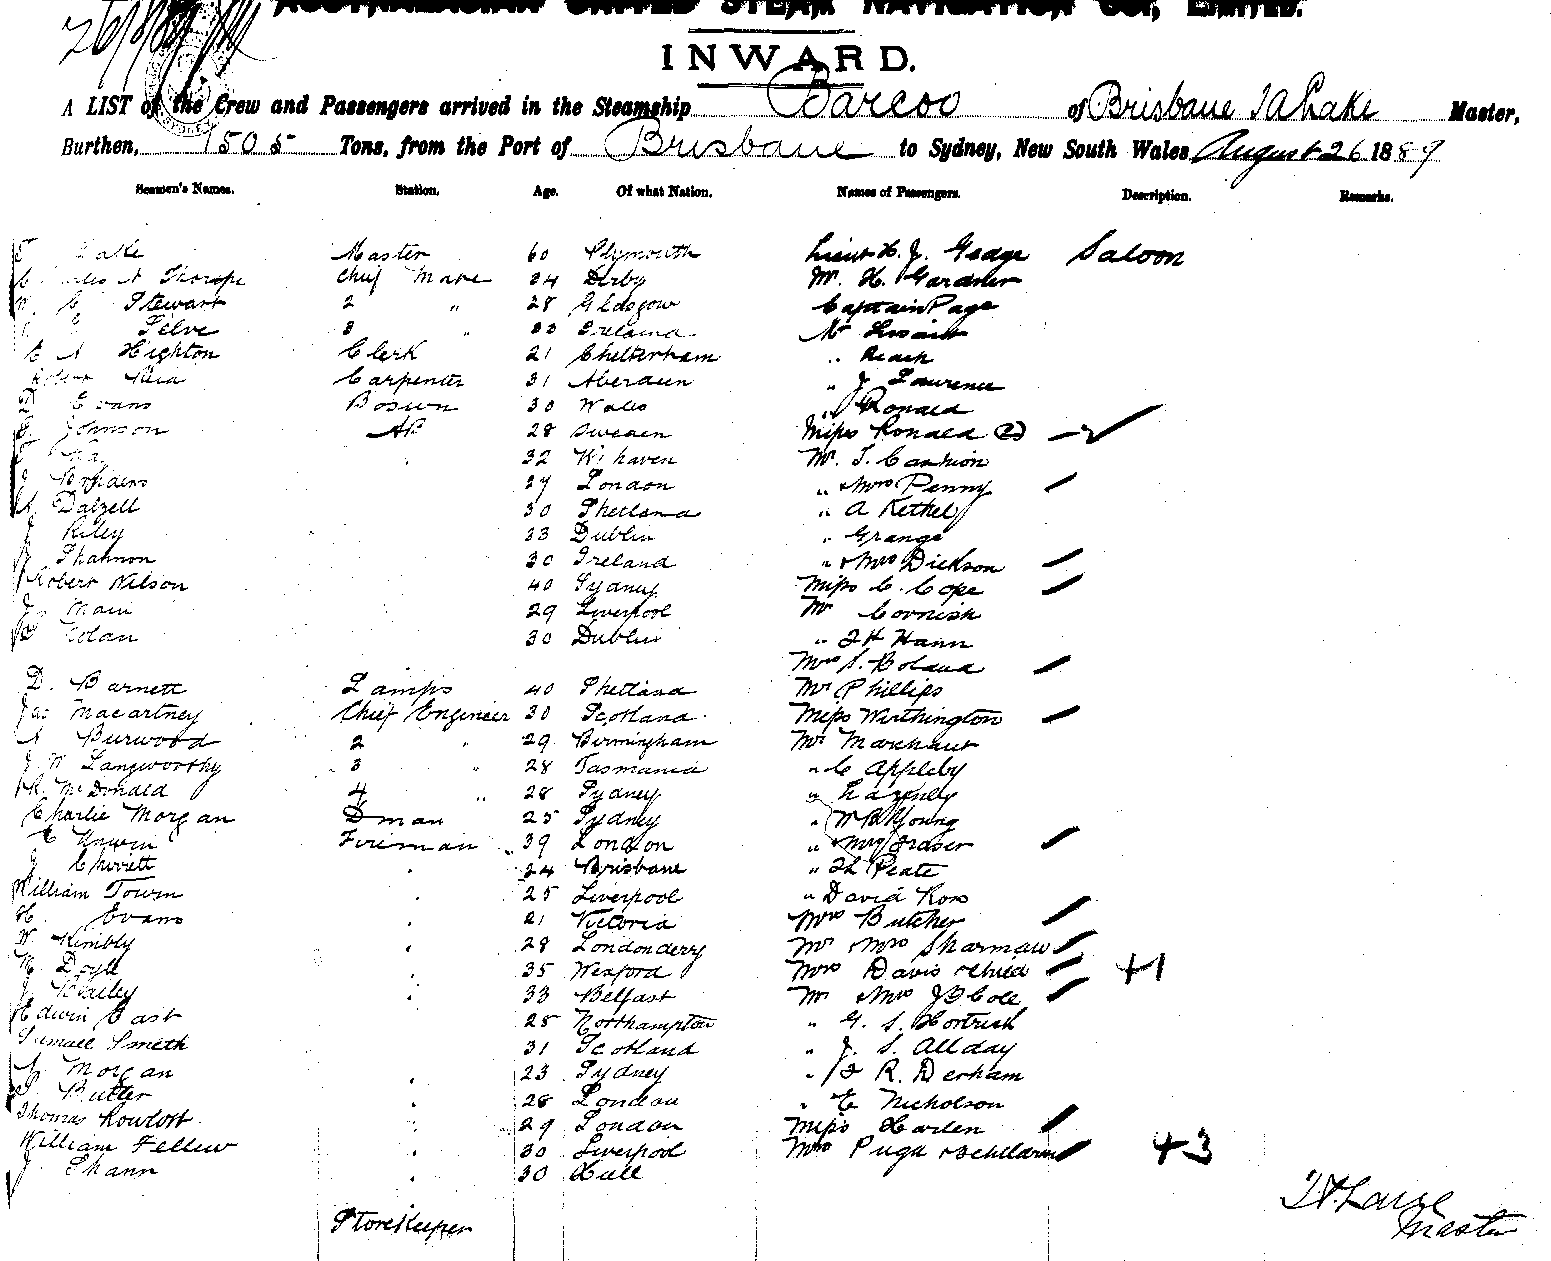 AUSTRALASIAN UNITED STEAM NAVIGATION CO., LIMITED.
26/8/89
INWARD.
A LIST of the Crew and Passengers arrived in the Steamship Barcoo of Brisbane Lake Master,
Burthen, 1505 Tons, from the Port of Brisbane to Sydney, New South Wales August 26 1889
Seamen's Names. Station. Age. Of what Nation. Names of Passengers. Description. Remarks.
Lake Master 60 Plymouth Lieut H. J. Gedge Saloon
Thorpe Chief Mate 34 Derby Mr. H. Gardner
W. Stewart 2 " 28 Glasgow Captain Page
3 " 33 Ireland Mr
C A Highton Clerk 21 Cheltenham "
Reid Carpenter 31 Aberdeen " J Lawrence
D Evans Bosun 30 Wales " Ronald
Johnson AB 28 Sweden Miss Ronald (2)
32 Whaven Mr. T. Cashion
27 London " & Mrs Penny
Dalzell 30 Shetland " A Kethel
J Riley 33 Dublin " Grange
J Shannon 30 Ireland " & Mrs Dickson
Robert Nilson 40 Sydney Miss C. Cope
J Main 29 Liverpool Mr Cornish
Nolan 30 Dublin " Hann
Mrs S. Boland
D. Barnett Lamps 40 Shetland Mr Phillips
Jas Macartney Chief Engineer 30 Scotland Miss Worthington
A Burwood 2 " 29 Birmingham Mr Marchant
J. W Langworthy 3 " 28 Tasmania " C Appleby
R. McDonald 4 " 28 Sydney "
Charlie Morgan Dman 25 Sydney " Young
E Unwin Fireman 39 London " Mrs Fraser
J 24 Brisbane " Peate
William Town 25 Liverpool " David Ross
H. Evans 21 Victoria Mrs Butcher
W. Kimbly 28 Londonderry Mr & Mrs Sharman
M. Doyle 35 Wexford Mrs Davis & child +1
J Bailey 33 Belfast Mr & Mrs Cole
Edwin East 25 Northampton " G. S. Hortrick
Smith 31 Scotland " J. S. Allday
Morgan 23 Sydney " R. Derham
Butler 28 London " E Nicholson
Thomas 29 London Miss Harden
William Fellew 30 Liverpool Mrs Pugh & children +3
J Shann 30 Hull
Storekeeper
Master